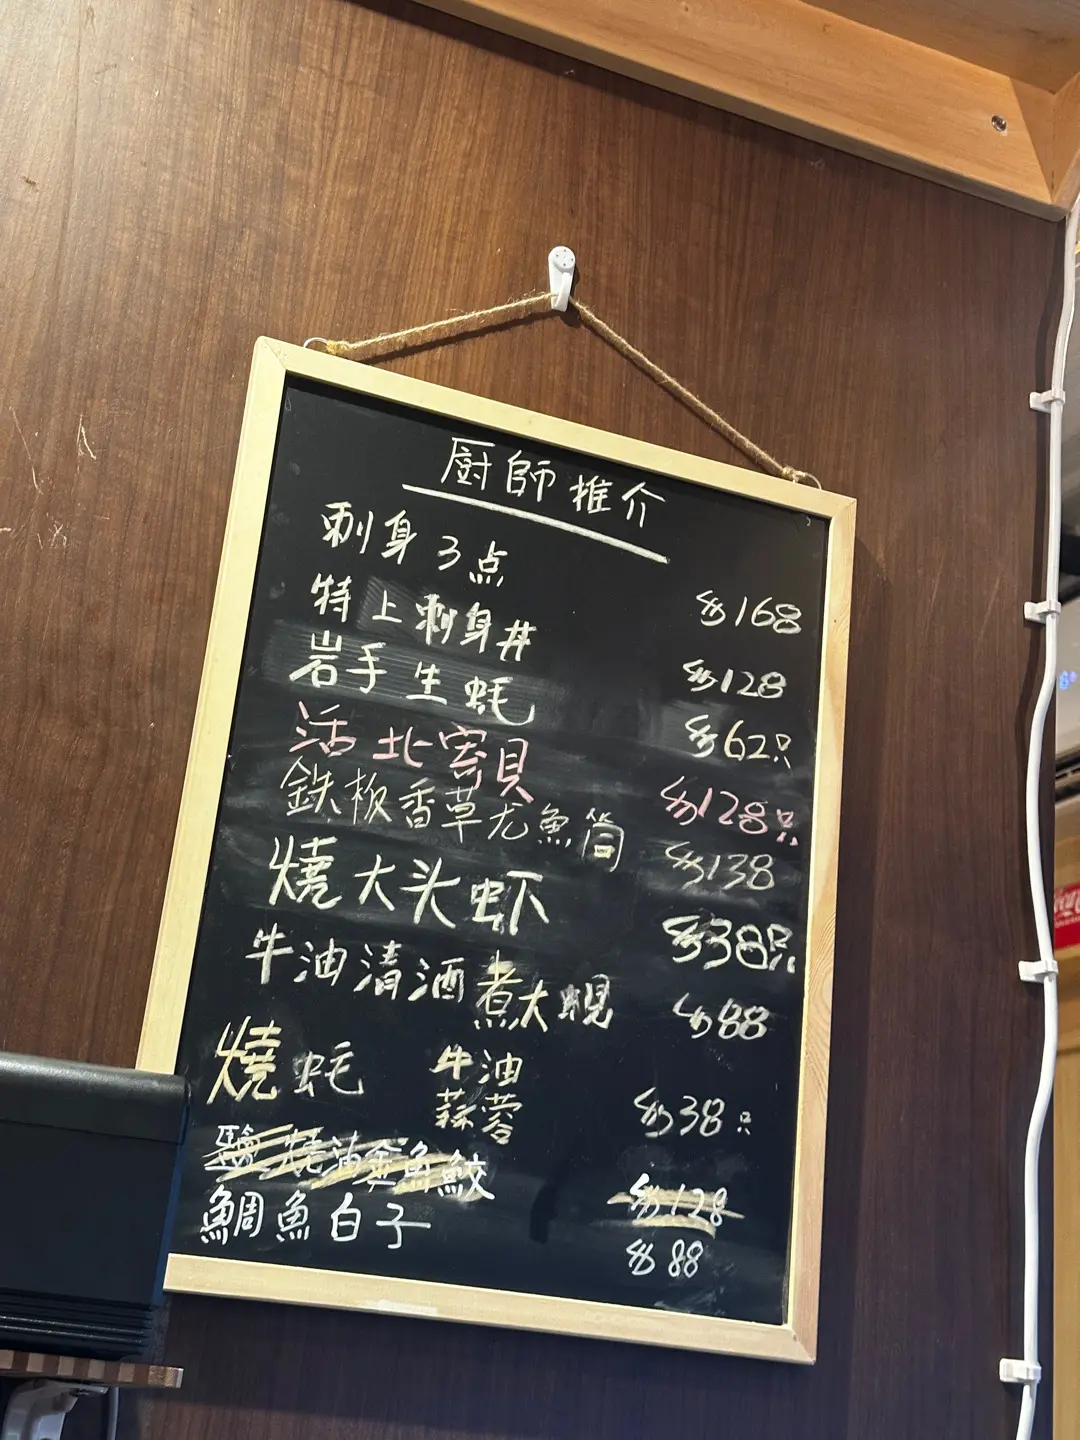 厨師推介
刺身3点 $168
特上刺身丼 $128
岩手生蚝 $62只
活北寄貝 $128只
鉄板香草尤魚筒 $138
燒大头虾 $38只
牛油清酒煮大蜆 $88
燒蚝 牛油
蒜蓉 $38只
鹽燒油金魚鮫 $128
鯛魚白子 $88